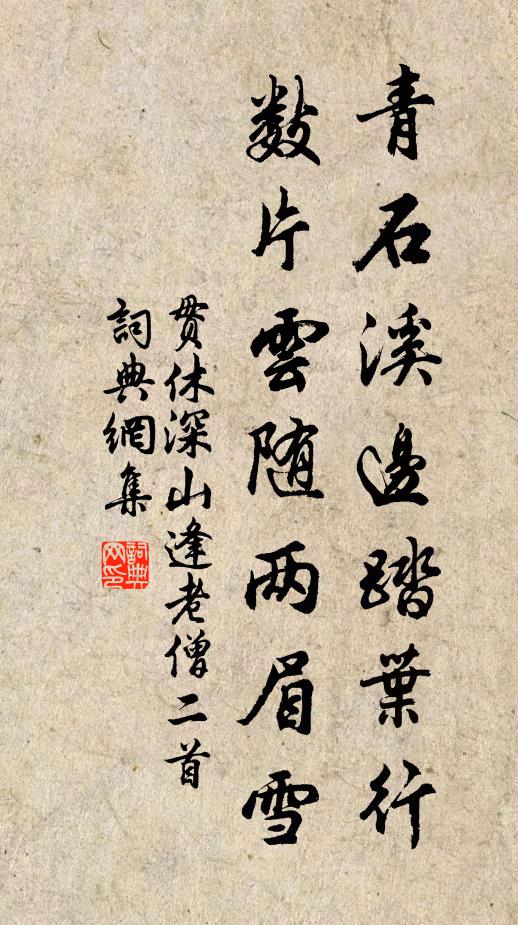 青石溪邊踏葉行
數片雲随两眉雪
貫休深山逢老僧二首
詞典網集
詞典網印